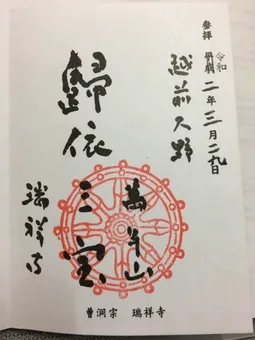 参拝
令和二年三月二九日
越前大野
歸依三宝
萬年山
瑞祥寺
曹洞宗　瑞祥寺